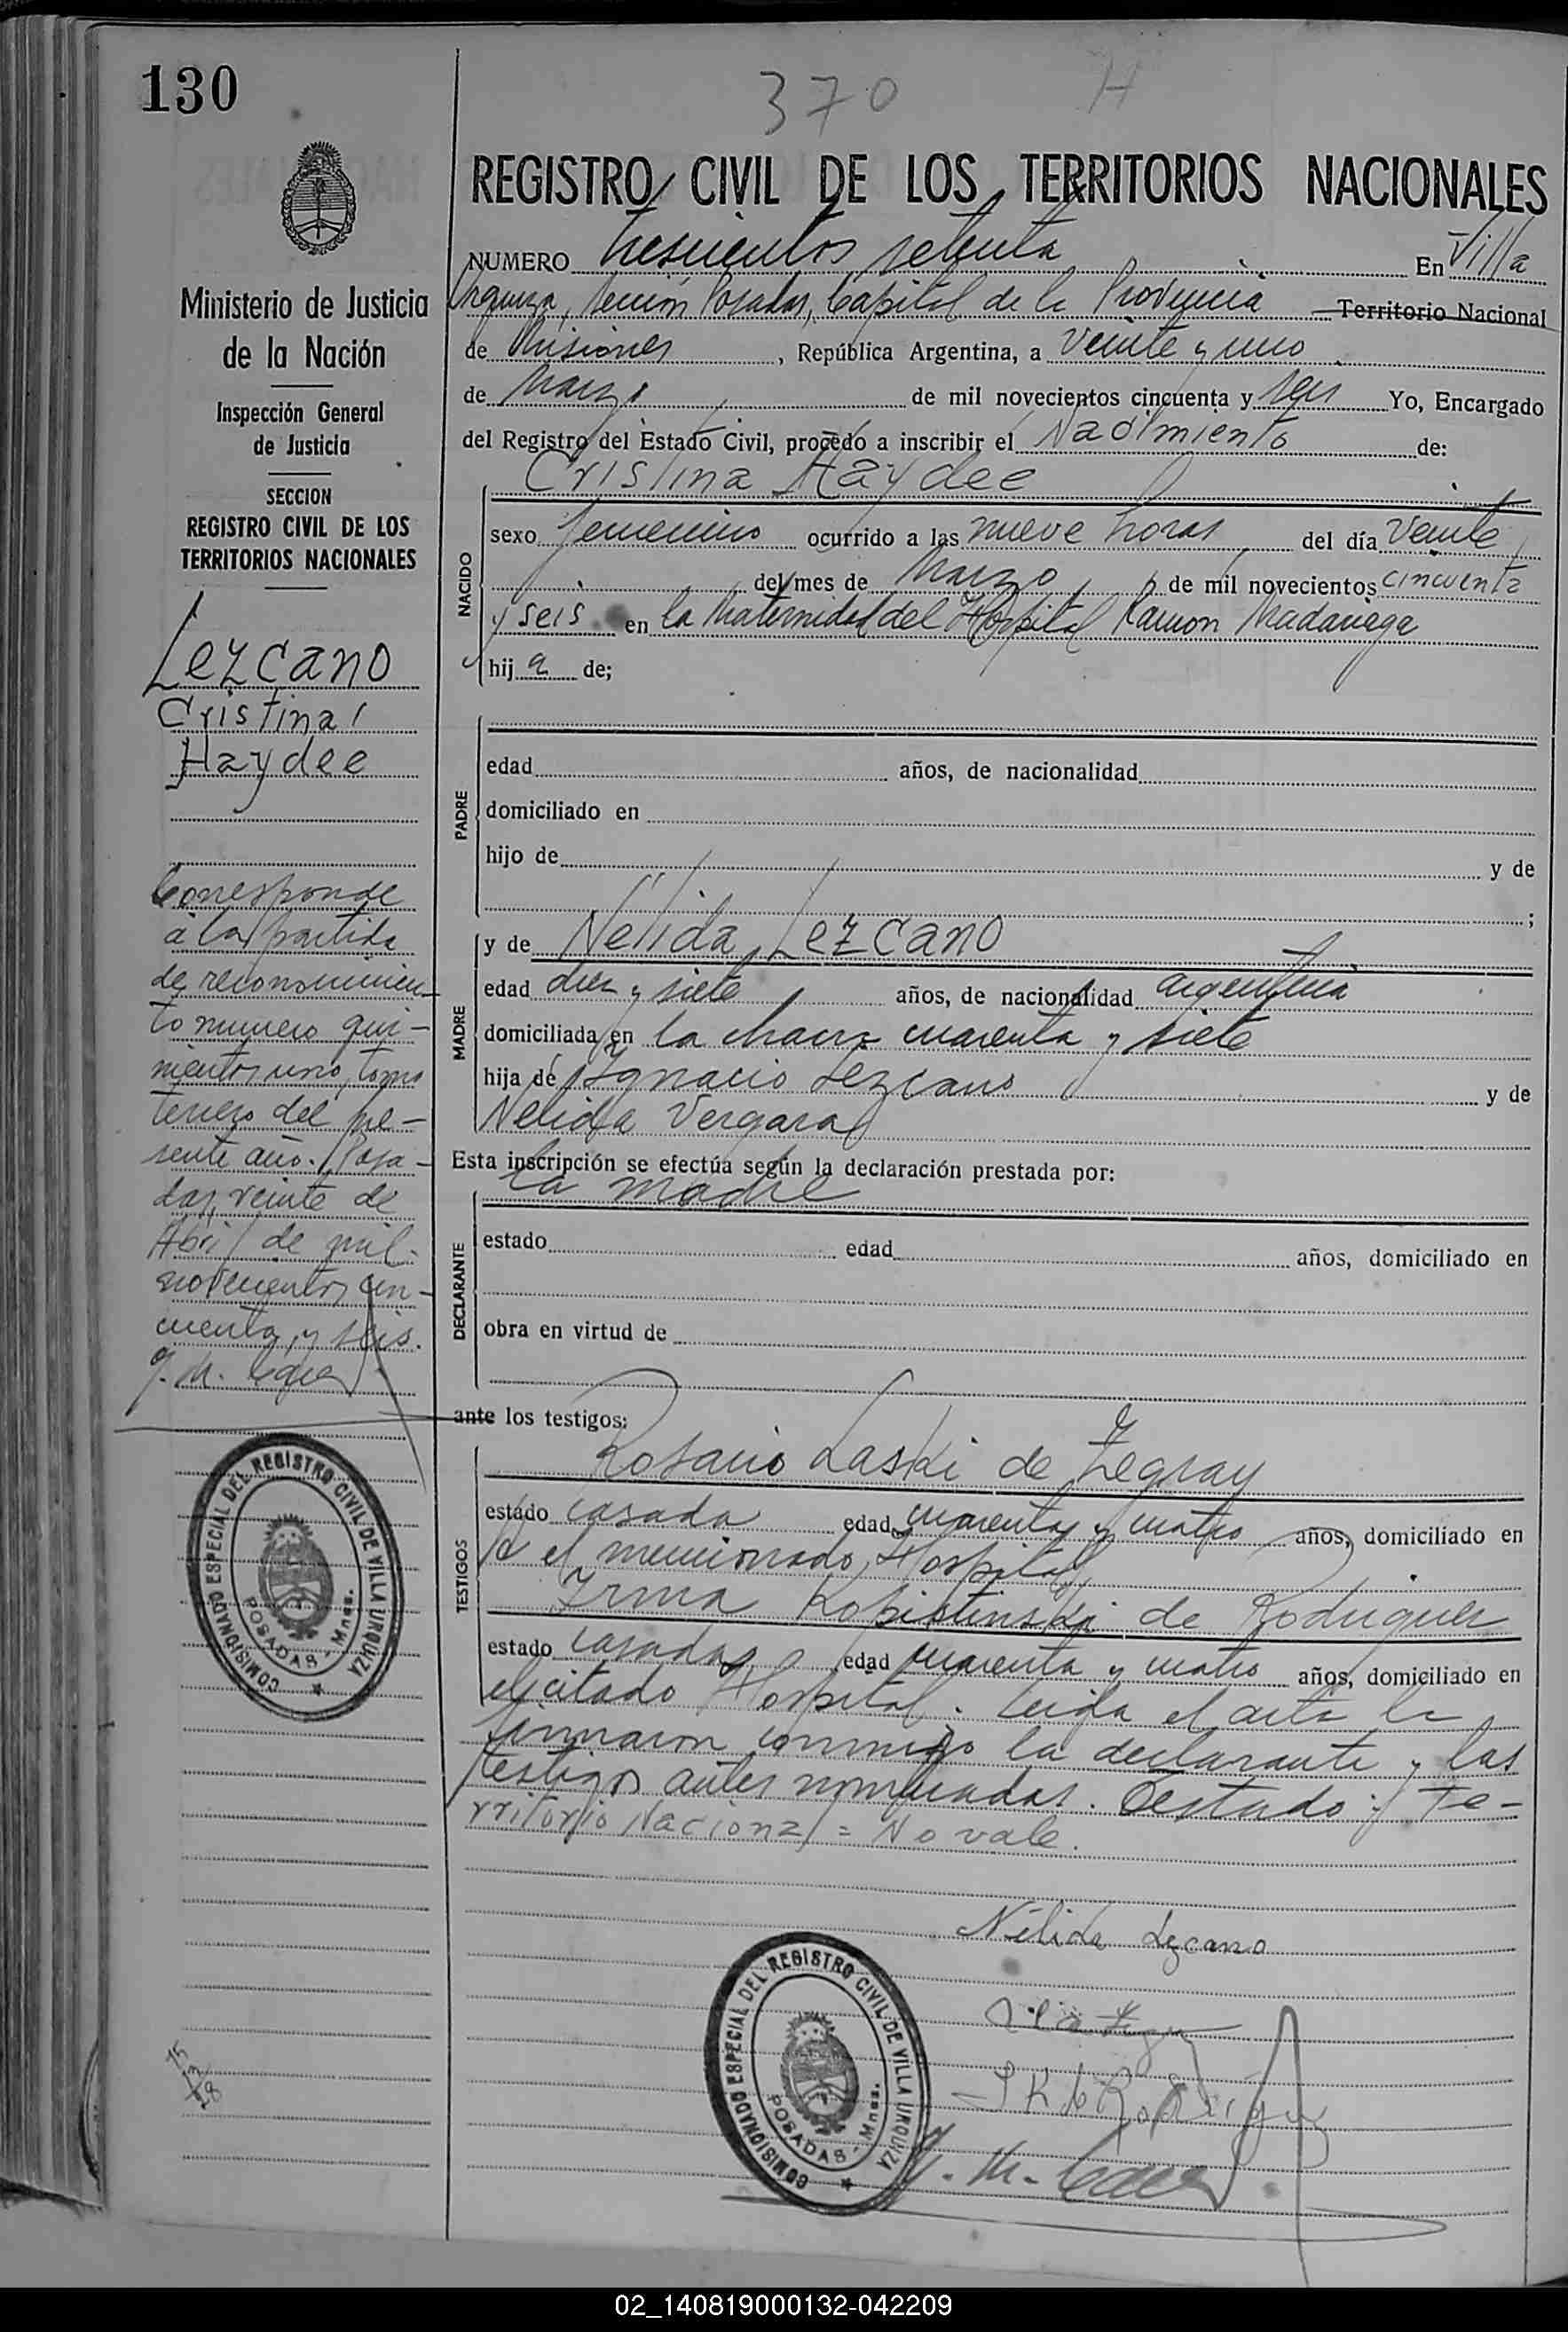 130
370 H
REGISTRO CIVIL DE LOS TERRITORIOS NACIONALES
Ministerio de Justicia
de la Nación
Inspección General
de Justicia
SECCION
REGISTRO CIVIL DE LOS
TERRITORIOS NACIONALES
Lezcano
Cristina
Haydee
Corresponde
a la partida
de reconocimien-
to numero qui-
nientos uno, tomo
tercero del pre-
sente año. Posa-
das, veinte de
Abril de mil
novecientos cin-
cuenta y seis.
COMISIONADO ESPECIAL DEL REGISTRO CIVIL DE VILLA URQUIZA
POSADAS - Mnes.
NUMERO trescientos setenta En Villa
Urquiza, sección Posadas, Capital de la Provincia Territorio Nacional
de Misiones, República Argentina, a veinte y uno
de Marzo de mil novecientos cincuenta y seis Yo, Encargado
del Registro del Estado Civil, procedo a inscribir el Nacimiento de:
Cristina Haydee
NACIDO
sexo femenino ocurrido a las nueve horas del día veinte
del mes de Marzo de mil novecientos cincuenta
y seis en la Maternidad del Hospital Ramon Madariaga
hij a de;
PADRE
edad años, de nacionalidad
domiciliado en
hijo de y de
;
MADRE
y de Nelida Lezcano
edad diez y siete años, de nacionalidad argentina
domiciliada en la chacra cuarenta y siete
hija de Ignacio Lezcano y de
Nelida Vergara
Esta inscripción se efectúa según la declaración prestada por:
la madre
DECLARANTE
estado edad años, domiciliado en
obra en virtud de
ante los testigos:
TESTIGOS
Rosario Laski de Zegray
estado casada edad cuarenta y cuatro años, domiciliado en
el mencionado Hospital
Irma Kopistinski de Rodriguez
estado casada edad cuarenta y cuatro años, domiciliado en
el citado Hospital. Leida el acta la
firmaron conmigo la declarante y las
testigos antes nombradas. Testado: Te-
rritorio Nacional = No vale.
Nélida Lezcano
COMISIONADO ESPECIAL DEL REGISTRO CIVIL DE VILLA URQUIZA
POSADAS - Mnes.
02_140819000132-042209